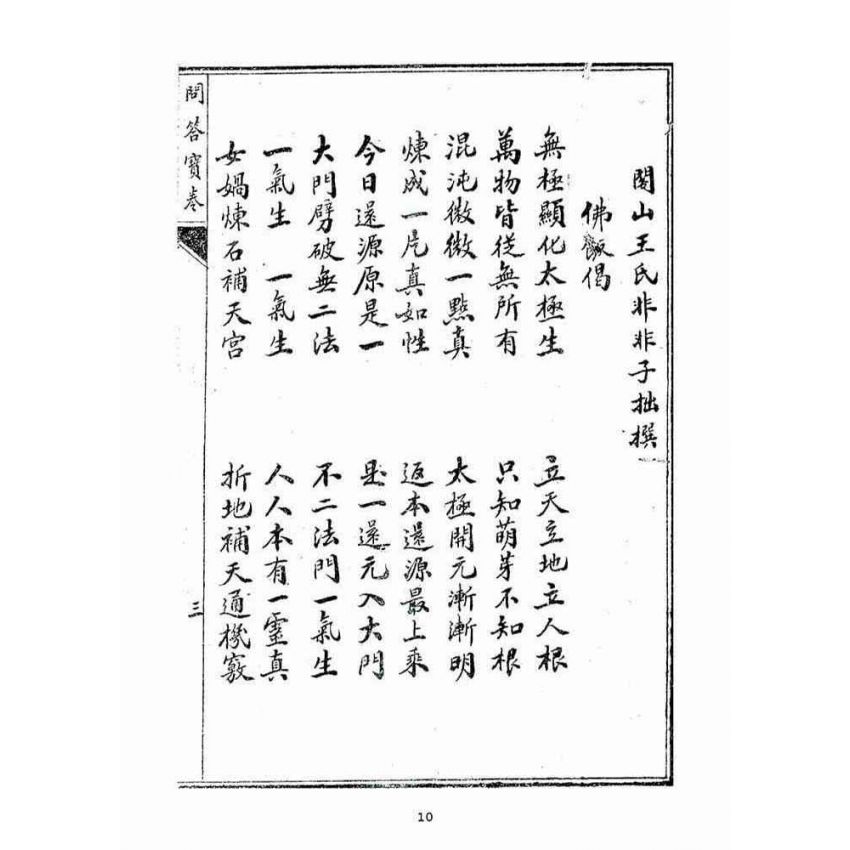 山王氏非非子拙撰
佛偈
無極顯化太極生 立天立地立人根
萬物皆從無所有 只知萌芽不知根
混沌微微一點真 太極開元漸漸明
煉成一片真如性 返本還源最上乘
今日還源原是一 是一還元入大門
大門劈破無二法 不二法門一氣生
一氣生 一氣生 人人本有一靈真
女媧煉石補天宮 折地補天通機竅
問答寶卷 三
10